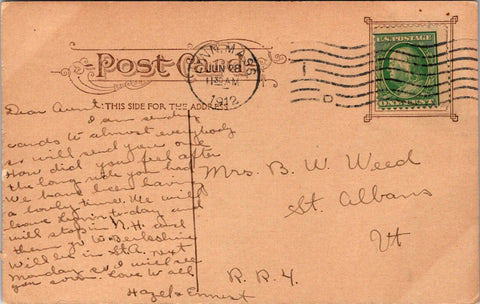 Post Card
LYNN, MASS.
JUN 28
11 30 AM
1912
U.S. POSTAGE
ONE CENT
THIS SIDE FOR THE ADDRESS
Dear Aunt:
I am sending
cards to almost everybody
so will send you one
How did you feel after
the long ride you had
We have been having
a lovely time. We will
leave Lynn today and
will stop in N.H. and
then go to
Will be in St. A. next
Monday so I will see
you soon. Love to all
Hazel & Ernest
Mrs. B. W. Weed
St. Albans
Vt
R. R. 4.